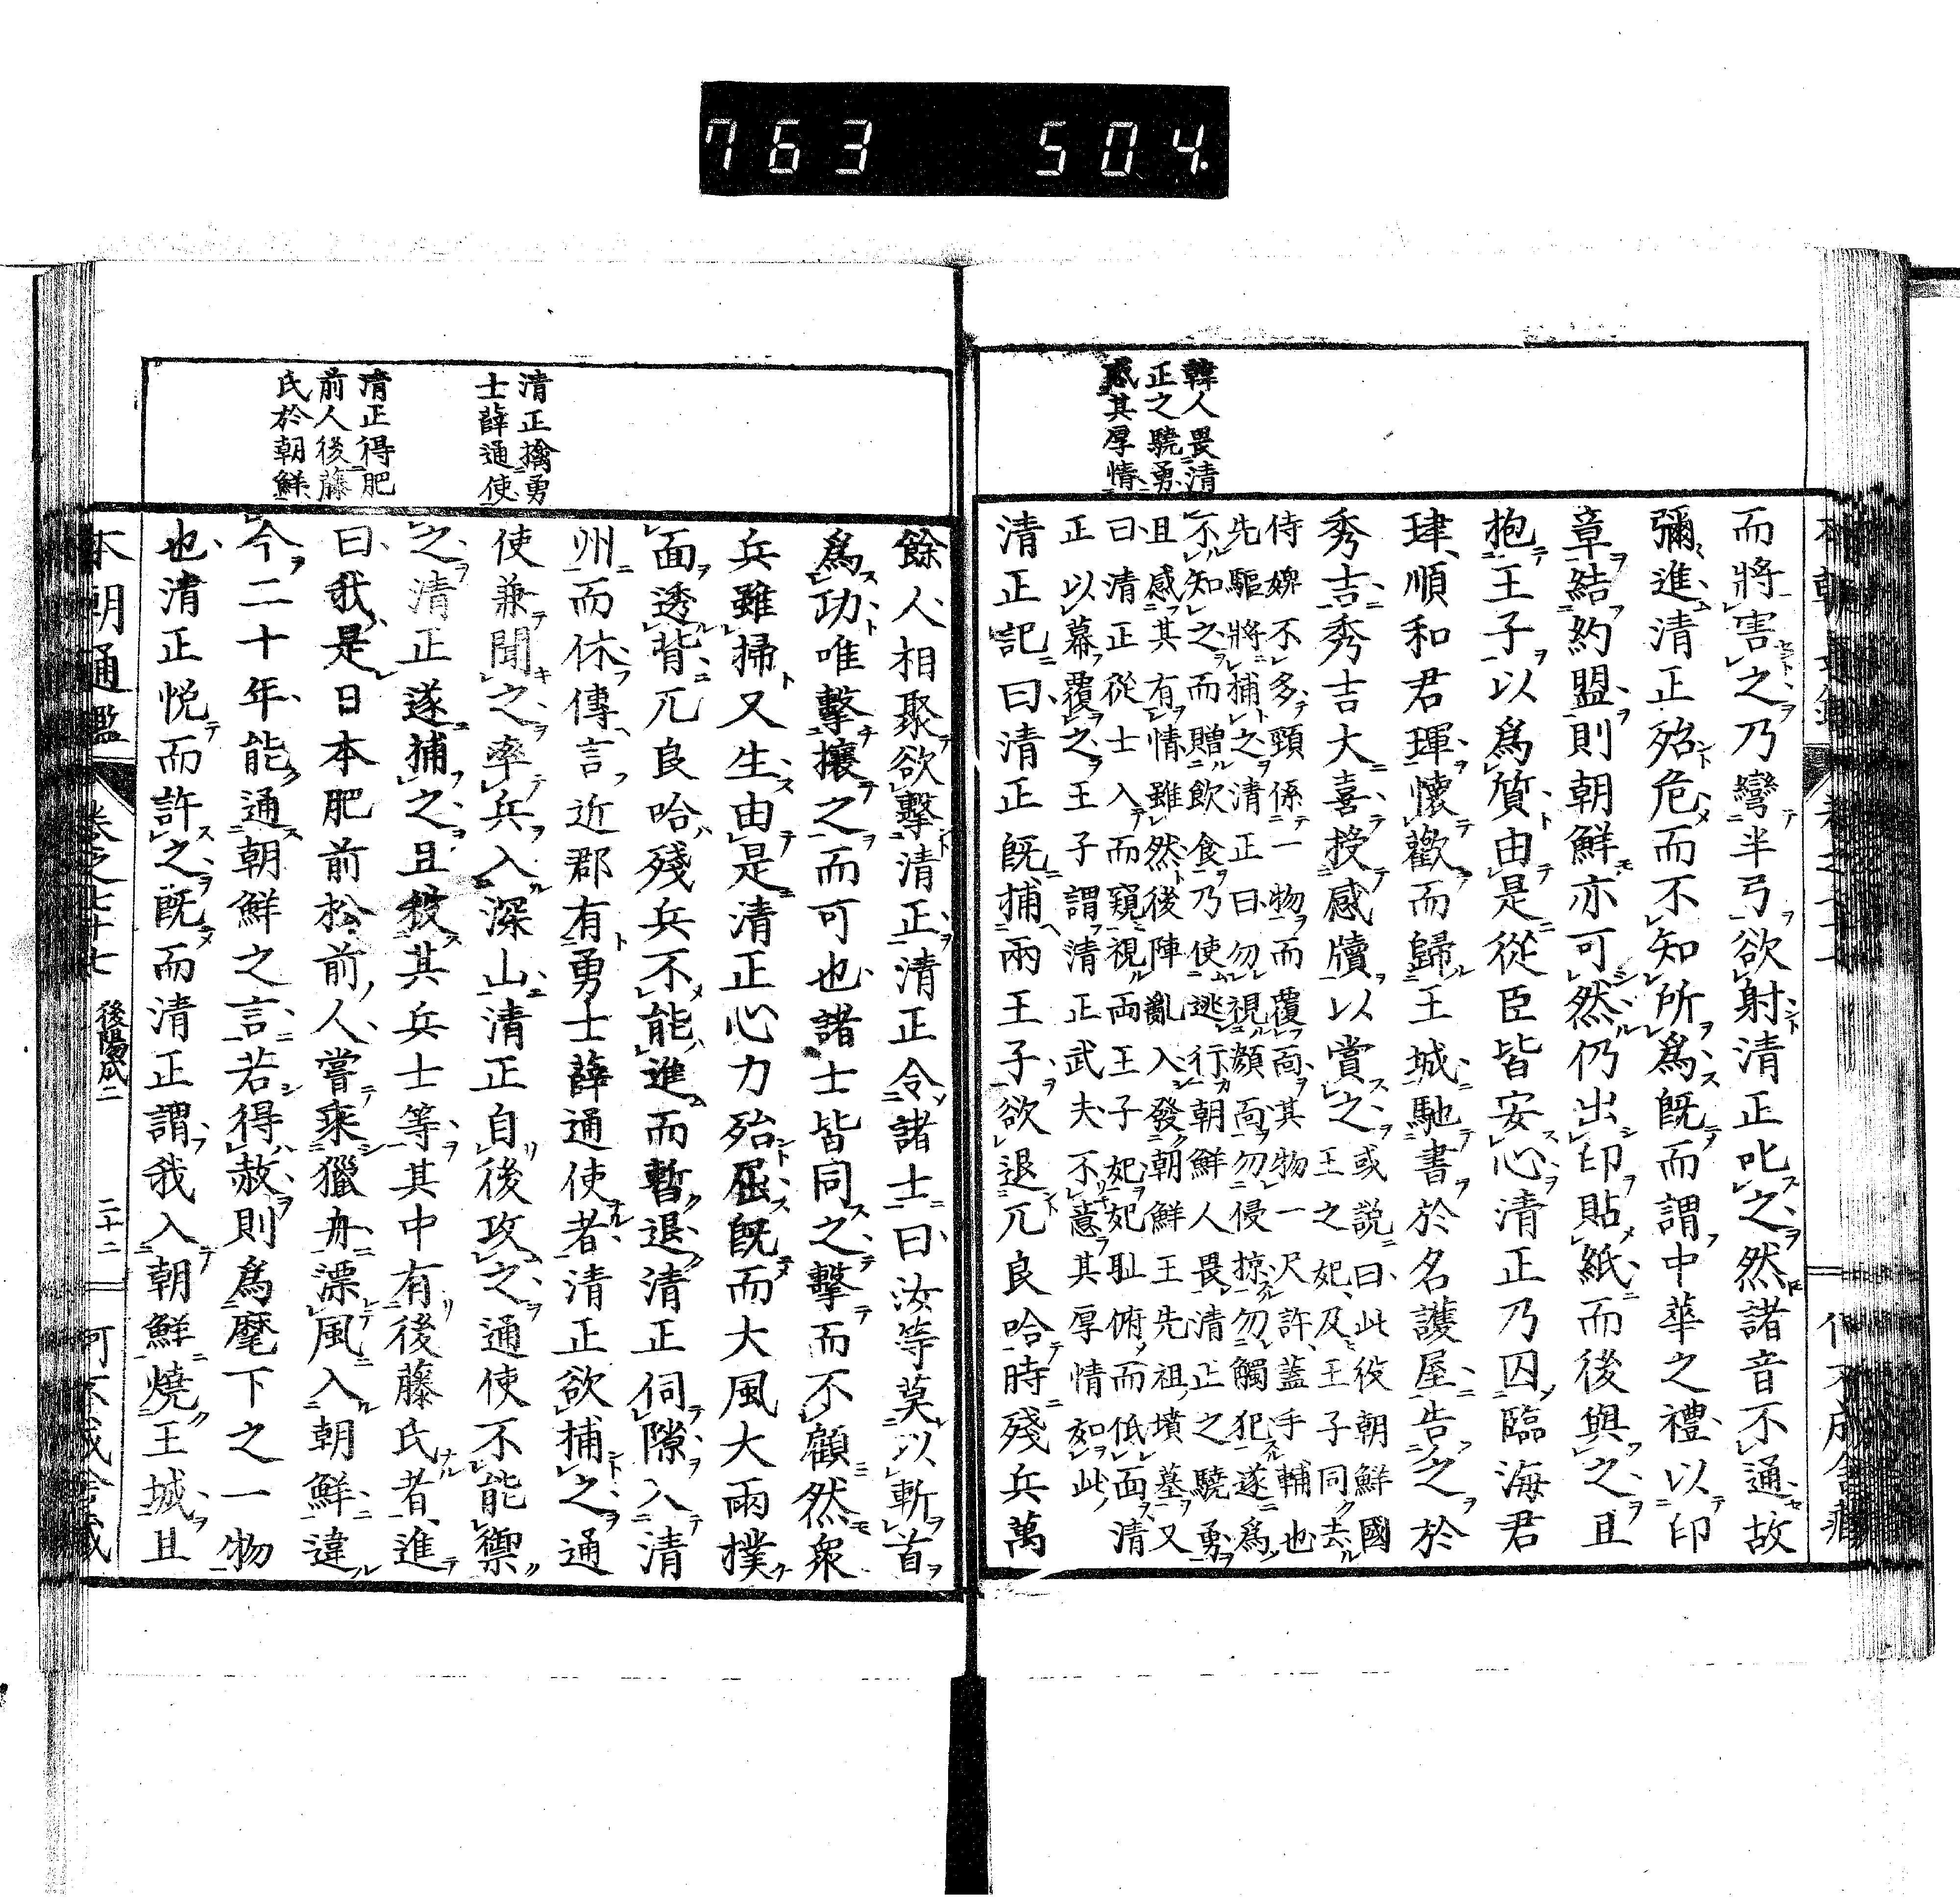 763 504.
韓人畏清
正之驍勇
感其厚情
而將害之乃彎半弓欲射清正叱之然諸音不通故
彌進清正殆危而不知所爲既而謂中華之禮以印
章結約盟則朝鮮亦可然仍出印貼紙而後與之且
抱王子以爲質由是從臣皆安心清正乃囚臨海君
珒順和君琿懷歡而歸王城馳書於名護屋告之於
秀吉秀吉大喜授感牘以賞之或説曰此役朝鮮國
王之妃及王子同去
侍婢不多頸係一物而覆面其物一尺許蓋手輔也
先驅將捕之清正曰勿視顏面勿侵掠勿觸犯遂爲
不知之而贈飲食乃使逃行朝鮮人畏清正之驍勇
且感其有情雖然後陣亂入發朝鮮王先祖墳墓又
曰清正從士入而窺視両王子妃妃耻俯而低面清
正以幕覆之王子謂清正武夫不意其厚情如此
清正記曰清正既捕兩王子欲退兀良哈時殘兵萬
清正擒勇
士薛通使
清正得肥
前人後藤
氏於朝鮮
餘人相聚欲擊清正清正令諸士曰汝等莫以斬首
爲功唯擊攘之而可也諸士皆同之擊而不顧然衆
兵雖掃又生由是清正心力殆屈既而大風大雨撲
面透背兀良哈殘兵不能進而暫退清正伺隙入清
州而休傳言近郡有勇士薛通使者清正欲捕之通
使兼聞之率兵入深山清正自後攻之通使不能禦
之清正遂捕之且殺其兵士等其中有後藤氏者進
曰我是日本肥前松前人嘗乘獵舟漂風入朝鮮違
今二十年能通朝鮮之言若得赦則爲麾下之一物
也清正悦而許之既而清正謂我入朝鮮燒王城且
本朝通鑑 卷之七十七 後陽成二 二十二